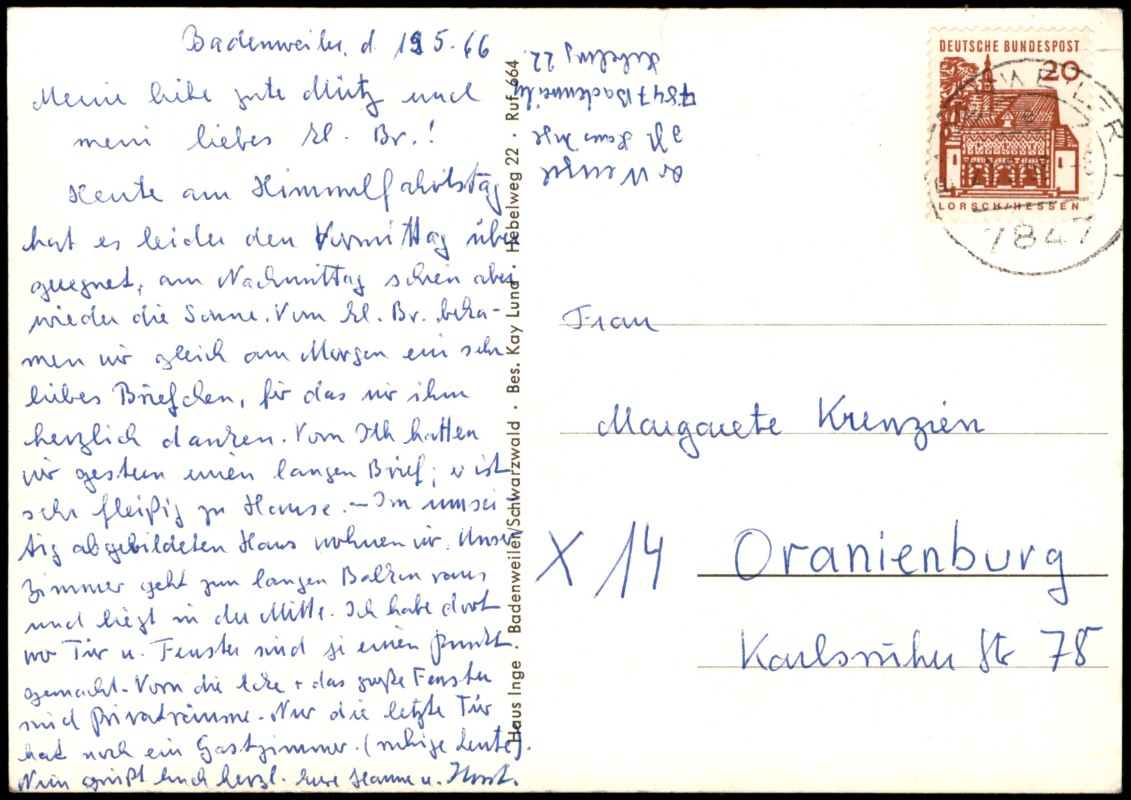 Badenweiler, d. 19.5.66
Meine liebe gute Mütz und
mein liebes kl. Br.!
Heute am Himmelfahrtstag
hat es leider den Vormittag über
geregnet, am Nachmittag schien aber
wieder die Sonne. Vom kl. Br. beka-
men wir gleich am Morgen ein sehr
liebes Briefchen, für das wir ihm
herzlich danken. Vom hatten
wir gestern einen langen Brief; er ist
sehr fleißig zu Hause. – Im umsei-
tig abgebildeten Haus wohnen wir. Unser
Zimmer geht zum langen Balkon raus
und liegt in der Mitte. Ich habe dort
wo Tür u. Fenster sind je einen Punkt
gemacht. Vorn die Ecke + das große Fenster
sind Privaträume. Nur die letzte Tür
hat noch ein Gastzimmer. (ruhige Leute).
Nun grüßt Euch herzl. Eure Hanne u. Horst.
Dr Wenzel
Haus Inge
7847 Badenweiler
Hebelweg 22.
Haus Inge · Badenweiler/Schwarzwald · Bes. Kay Lund · Hebelweg 22 · Ruf 664
DEUTSCHE BUNDESPOST
20
LORSCH/HESSEN
BADENWEILER
7847
Frau
Margarete Krenzien
X 14 Oranienburg
Karlsruher Str 78